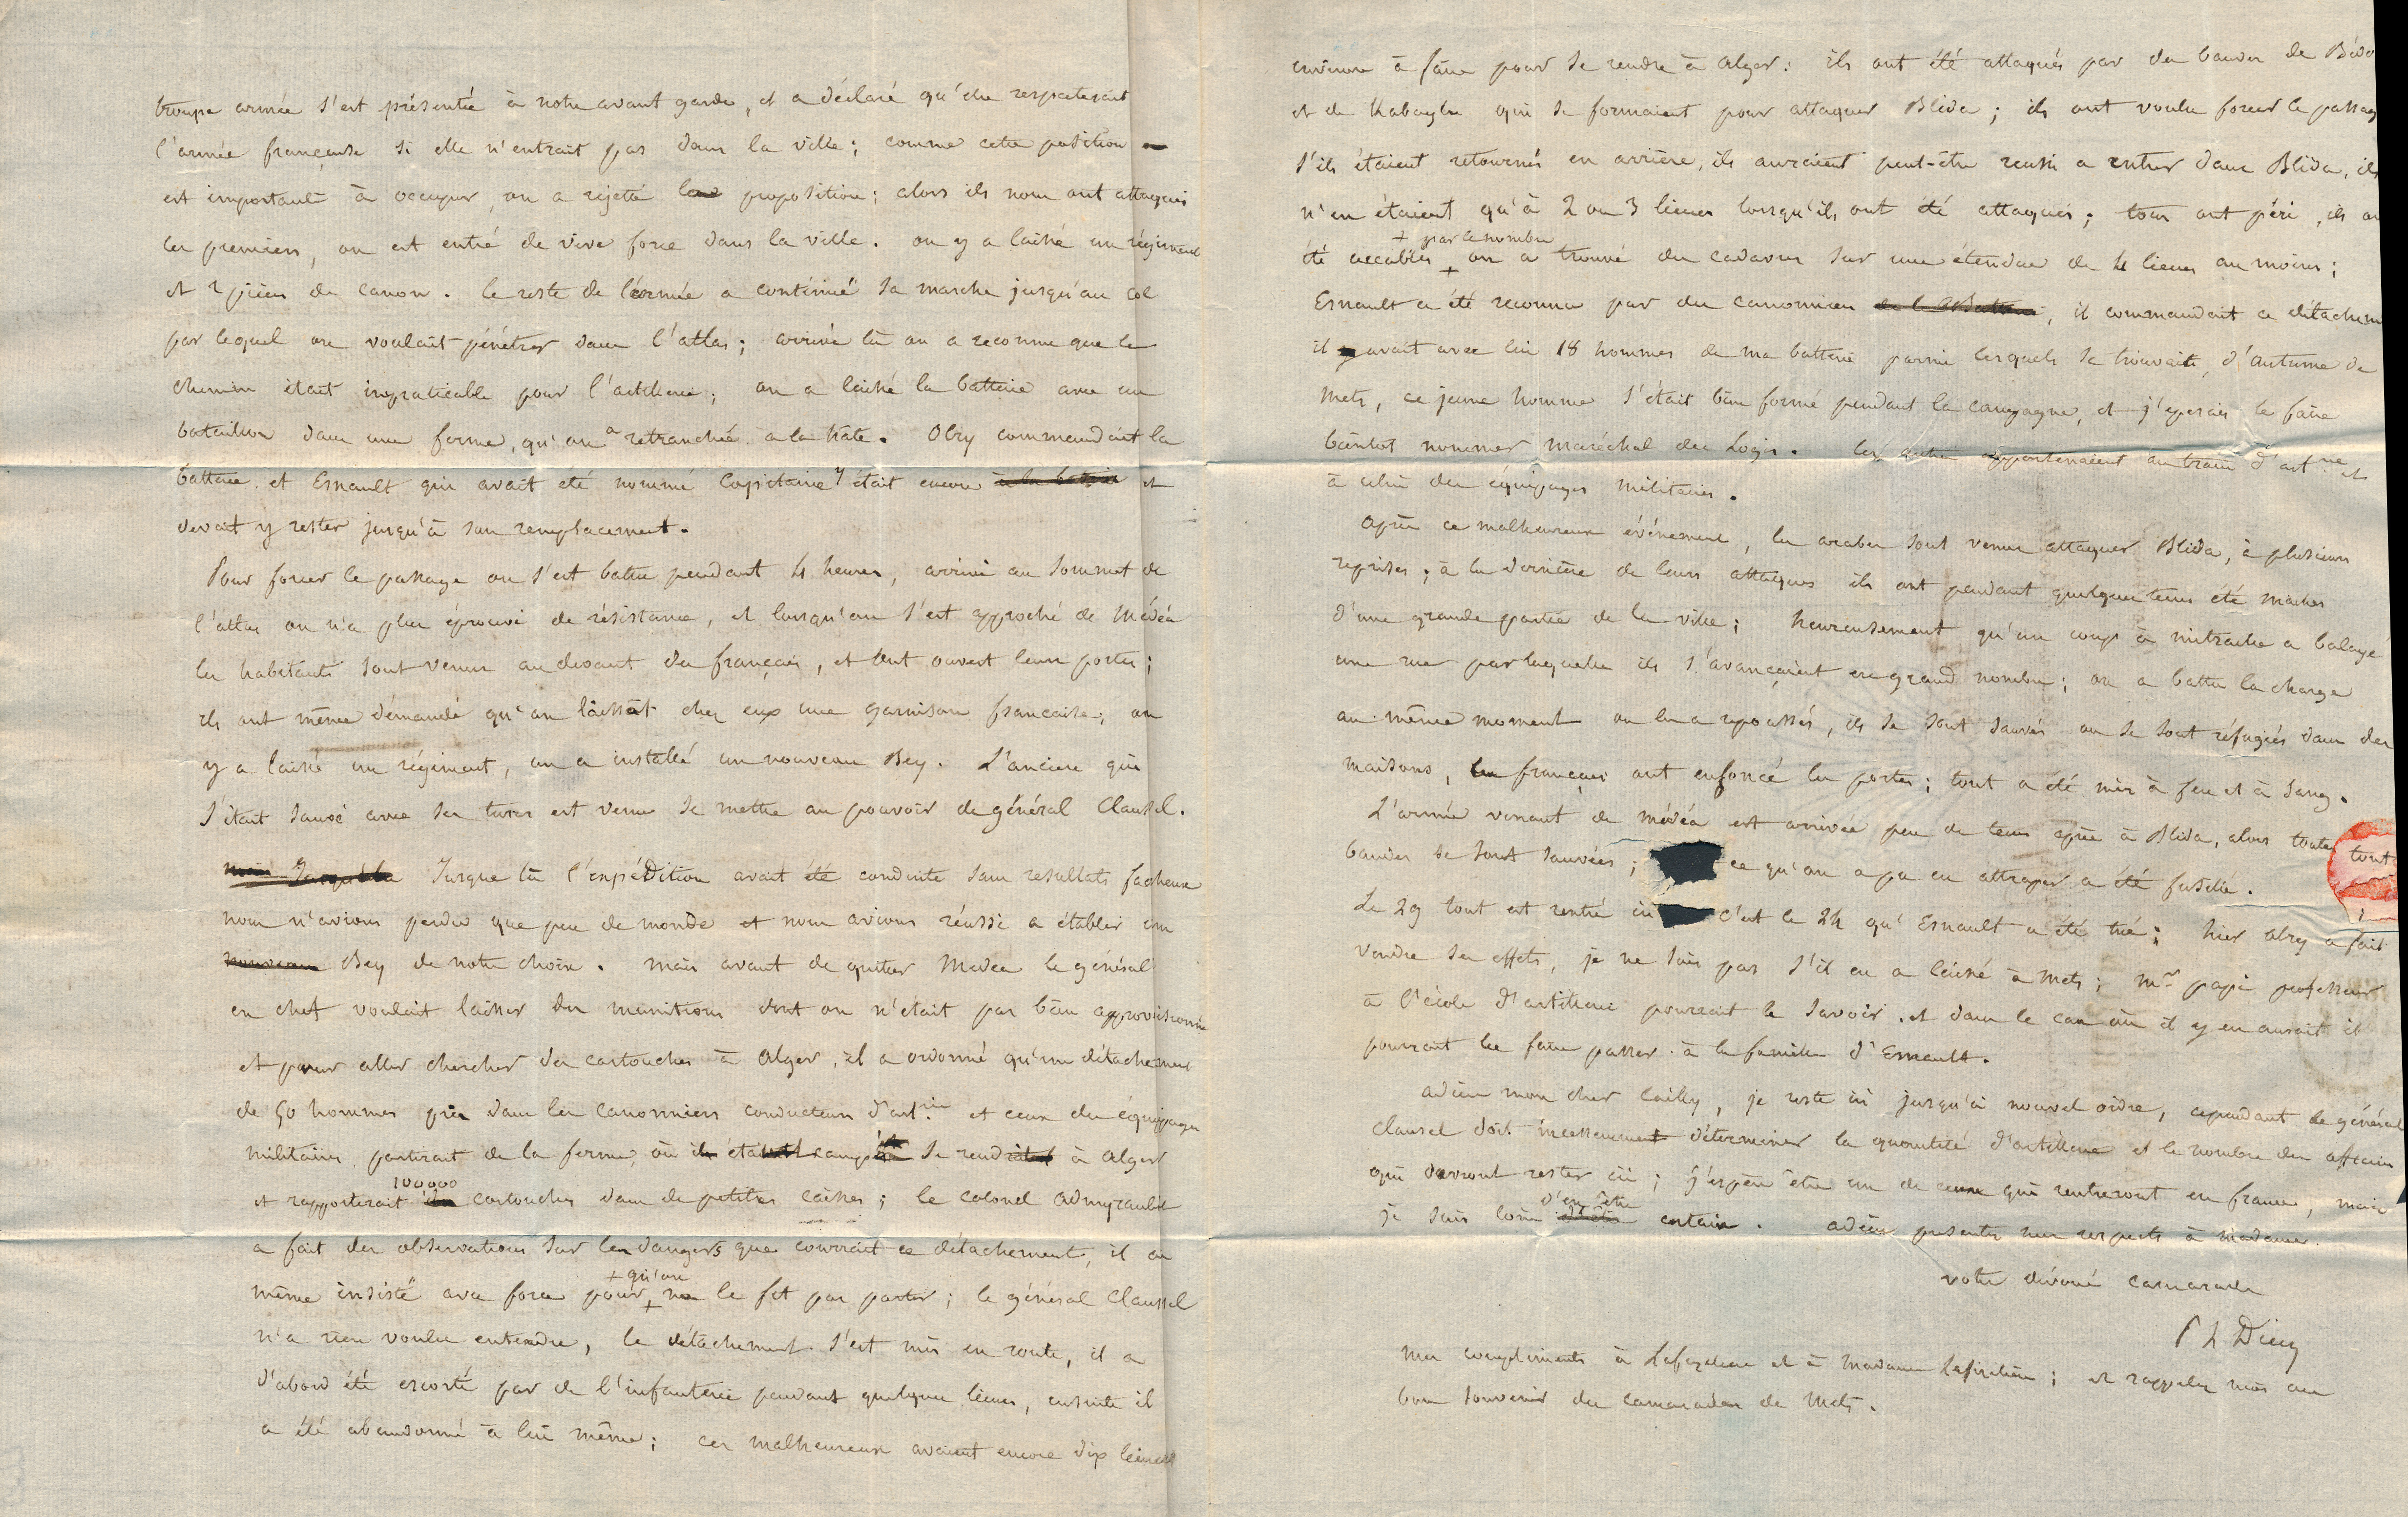 troupe armée s'est présentée à notre avant garde, et a déclaré qu'elle respecterait
l'armée française si elle n'entrait pas dans la ville; comme cette position
est importante à occuper, on a rejeté la proposition; alors ils nous ont attaqués
les premiers, on est entré de vive force dans la ville. on y a laissé un régiment
et 2 pièces de canon. le reste de l'armée a continué sa marche jusqu'au col
par lequel on voulait pénétrer dans l'atlas; arrivé là on a reconnu que le
chemin était impraticable pour l'artillerie; on a laissé la batterie avec un
bataillon dans une ferme, qu'on a retranchée à la hate. Olry commandait la
batterie et Esnault qui avait été nommé Capitaine y était encore et
devait y rester jusqu'à son remplacement.
Pour forcer le passage on s'est battu pendant 4 heures, arrivé au sommet de
l'atlas on n'a plus éprouvé de résistance, et lorsqu'on s'est approché de Médéa
les habitants sont venus au devant des français, et ont ouvert leurs portes;
ils ont même démandé qu'on laissat chez eux une garnison française; on
y a laissé un régiment, on a installé un nouveau Bey. L'ancien qui
s'était sauvé avec ses turcs est venu se mettre au pouvoir de général Clausel.
Jusque là l'expédition avait été conduite sans resultats facheux
nous n'avions perdu que peu de monde et nous avions réussi a établir un
nouveau Bey de notre choix. mais avant de quitter Medea le général
en chef voulait laisser des munitions dont on n'était pas bien approvisionné
et pour aller chercher des cartouches à Alger, il a ordonné qu'un détachement
de 50 hommes pris dans les canonniers conducteurs d'art.rie et ceux des équipages
militaires partirait de la ferme, où ils étaient campés se rendrait à Alger
et rapporterait 100000 cartouches dans de petites caisses; le colonel Admyrault
a fait des observations sur les dangers que courrait ce détachement, il a
même insisté avec force pour + qu'on ne le fit pas partir; le général Clausel
n'a rien voulu entendre, le détachement s'est mis en route, il a
d'abord été escorté par de l'infanterie pendant quelques lieues, ensuite il
a été abandonné à lui même; ces malheureux avaient encore dix lieues
environ à faire pour se rendre à Alger: ils ont été attaqués par des bandes de Bédo
et de Kabayles qui se formaient pour attaquer Blida; ils ont voulu forcer le passag
s'ils étaient retournés en arrière, ils auraient peut-être reussi a entrer dans Blida, ils
n'en étaient qu'à 2 ou 3 lieues lorsqu'ils ont été attaqués; tous ont péri, ils on
été accablés + par le nombre on a trouvé des cadavres sur une étendue de 4 lieues au moins;
Esnault a été reconnu par des canonniers, il commandait ce détachem
il y avait avec lui 18 hommes de ma batterie parmi lesquels se trouvait d'Autume de
Metz, ce jeune homme s'était bien formé pendant la campagne, et j'esperais le faire
bientot nommer maréchal des Logis. les autres appartenaient au train d'art.rie et
à celui des équipages militaires.
Après ce malheureux événement, les arabes sont venus attaquer Blida, à plusieurs
reprises; à la dernière de leurs attaques ils ont pendant quelques tems été maitres
d'une grande partie de la ville; heureusement qu'un coup à mitraille a balayé
une rue par laquelle ils s'avançaient en grand nombre; on a battu la charge
au même moment on les a repoussés, ils se sont sauvés ou se sont réfugiés dans des
maisons, les français ont enfoncé les portes; tout a été mis à feu et à sang.
L'armée venant de médéa est arrivée peu de tems après à Blida, alors toutes
bandes se sont sauvées; ce qu'on a pu en attraper a été fusillé.
Le 29 tout est rentré ici c'est le 24 qu'Esnault a été tué; hier Olry a fait
vendre ses effets, je ne sais pas s'il en a laissé à Metz; Mr papi professeur
à l'école d'artillerie pourrait le savoir. et dans le cas où il y en aurait il
pourrait les faire passer à la famille d'Esnault.
adieu mon cher Cailly, je reste ici jusqu'à nouvel ordre, cependant le général
Clausel doit incessamment déterminer la quantité d'artillerie et le nombre des officiers
qui devront rester ici; j'espère être un de ceux qui rentreront en france, mais
je suis loin d'en être certain. adieu presentez mes respects à madame.
votre dévoué camarade
P L Dieu
mes compliments à et à Madame; et rappelez mois au
bon souvenir des camarades de Metz.